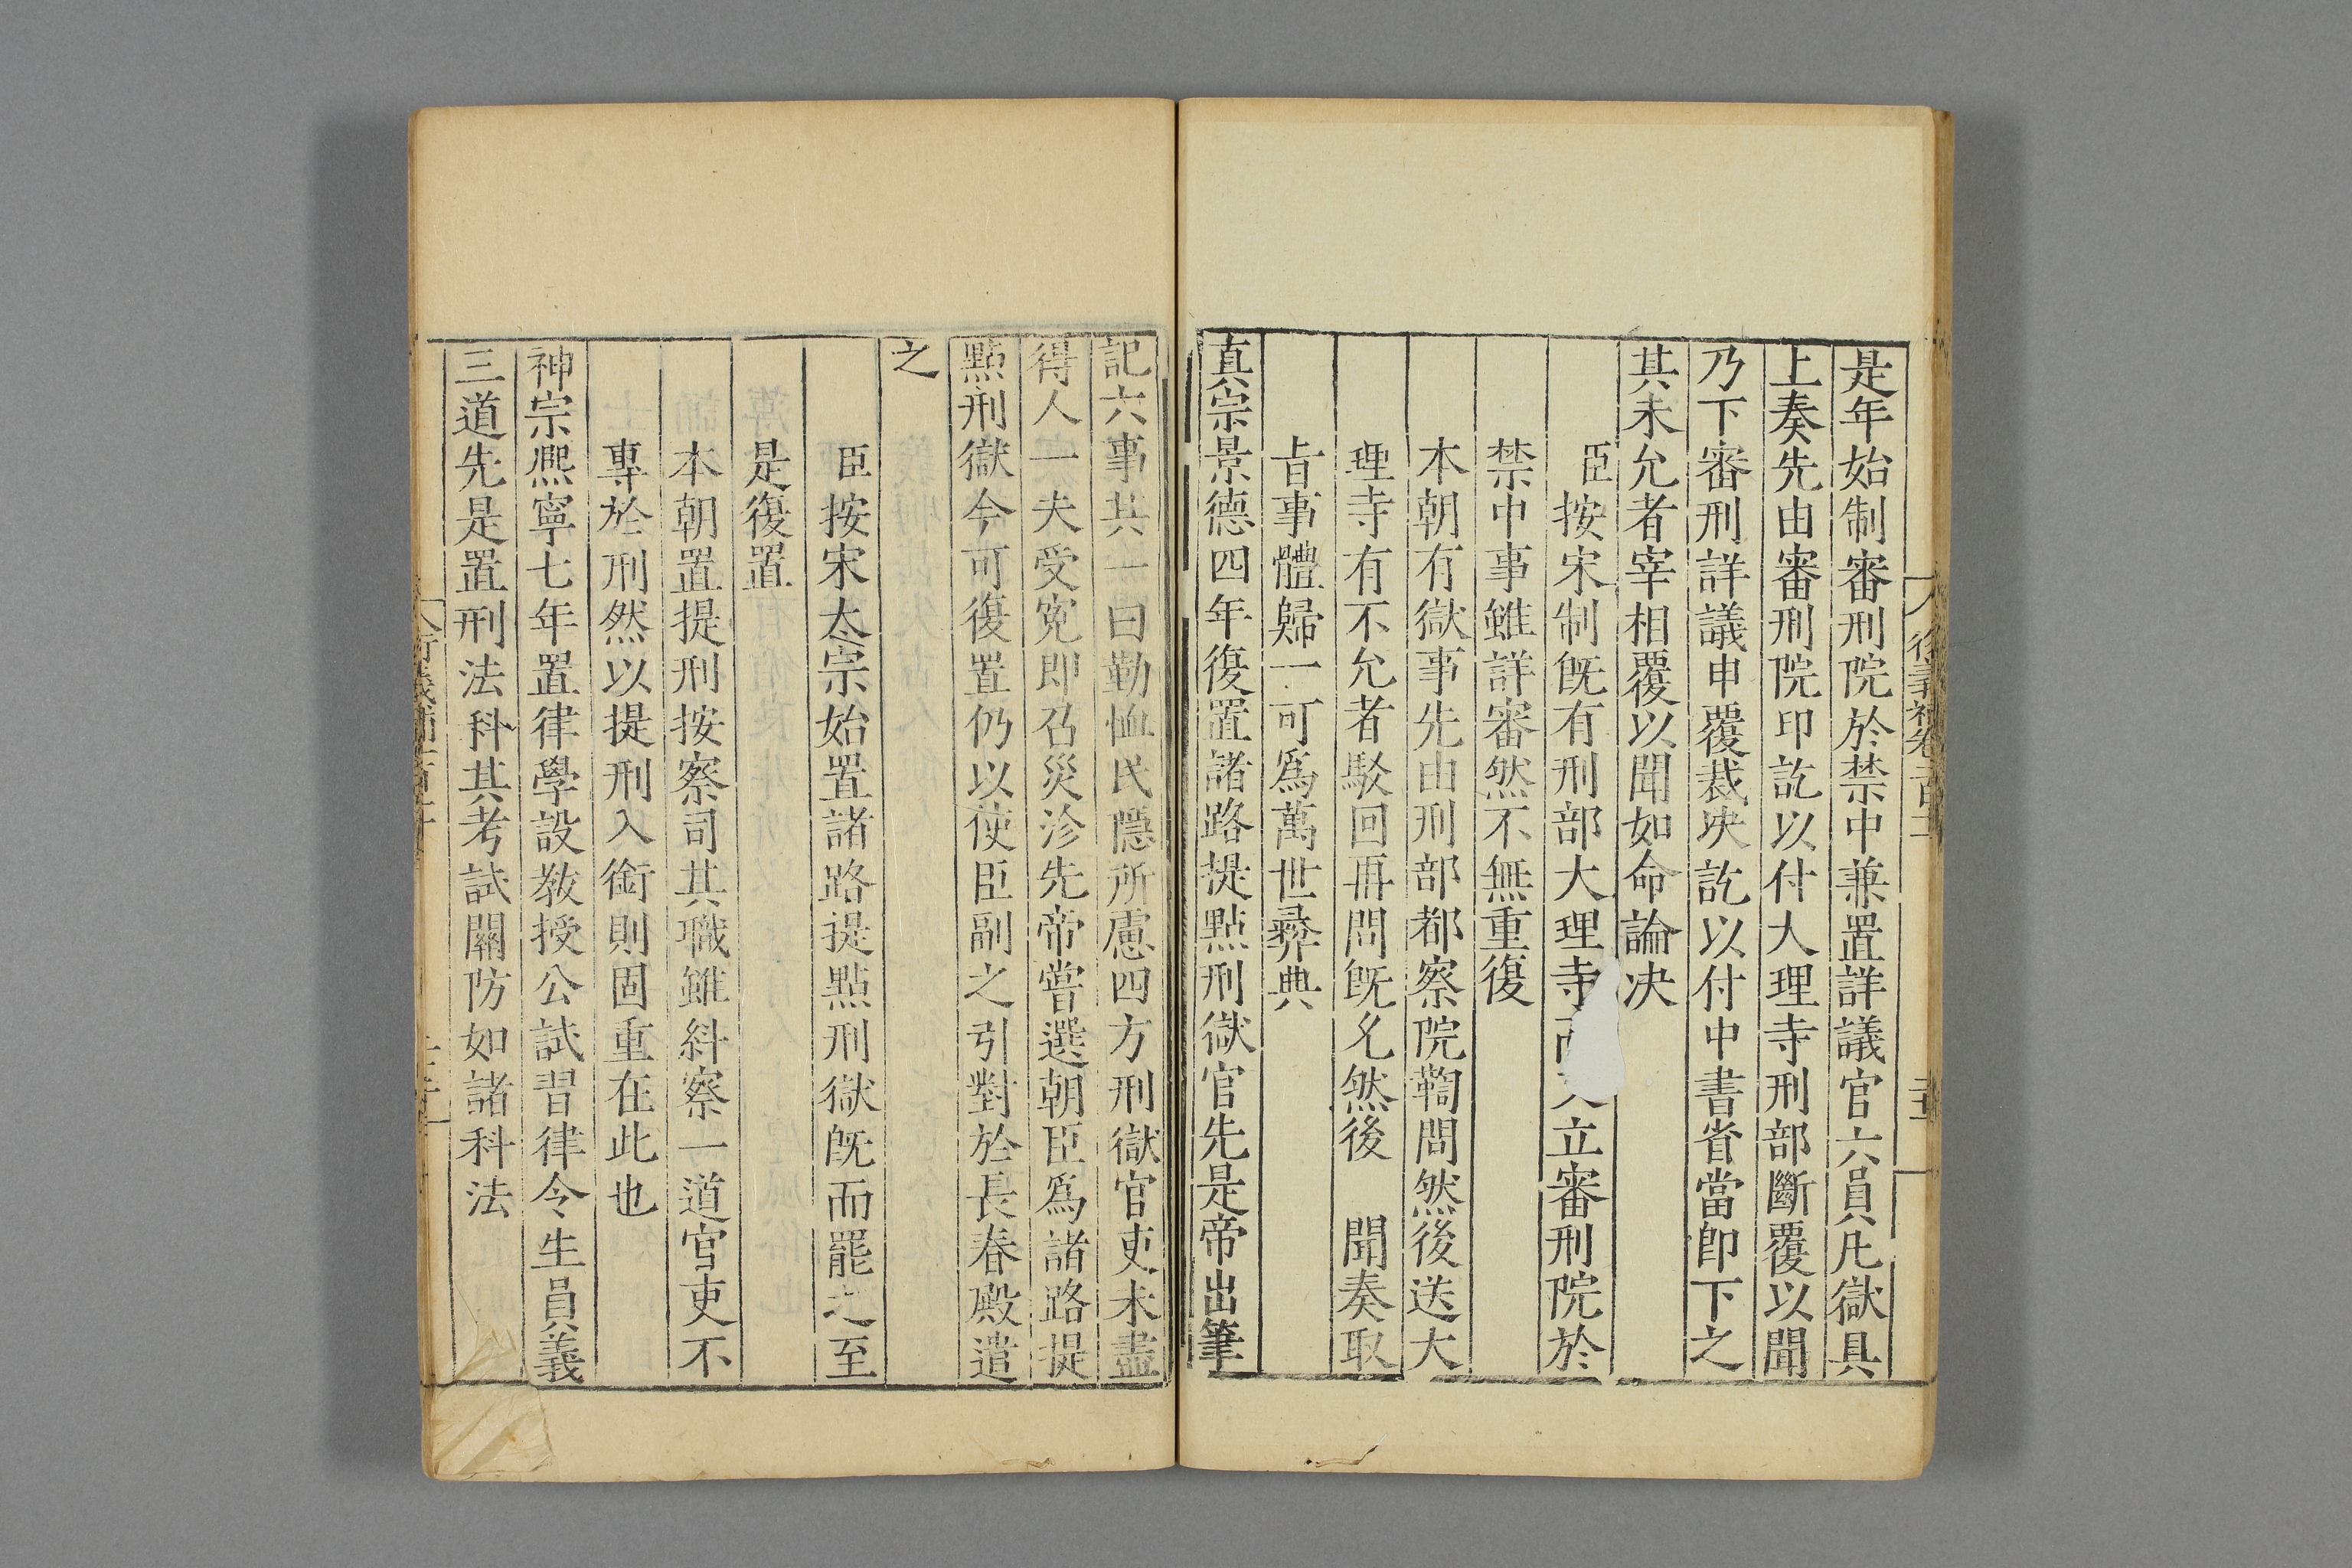 是年始制審刑院於禁中兼置詳議官六員凡獄具
上奏先由審刑院印訖以付大理寺刑部斷覆以聞
乃下審刑詳議申覆裁决訖以付中書省當卽下之
其未允者宰相覆以聞如命論决
臣按宋制旣有刑部大理寺立審刑院於
禁中事雖詳審然不無重復
本朝有獄事先由刑部都察院鞫問然後送大
理寺有不允者駁回再問旣允然後 聞奏取
旨事體歸一可爲萬世彞典
真宗景德四年復置諸路提點刑獄官先是帝出筆
記六事其一曰勤恤民隱所慮四方刑獄官吏未盡
得人一夫受冤即召災沴先帝嘗選朝臣爲諸路提
點刑獄今可復置仍以使臣副之引對於長春殿遣
之
臣按宋太宗始置諸路提點刑獄旣而罷之至
是復置
本朝置提刑按察司其職雖糾察一道官吏不
專於刑然以提刑入銜則固重在此也
神宗熙寧七年置律學設教授公試習律令生員義
三道先是置刑法科其考試關防如諸科法